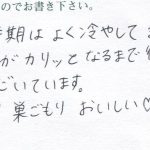 のでお書き下さい。
期は よく冷やして
がカリッと なるまで
ています。
巣ごもり おいしい♡